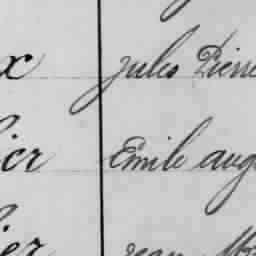 x Jules Pierre
ier Emile aug
ier Jean